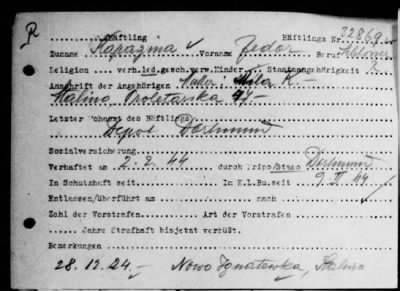 R
Häftling Häftlings Nr. 32869
Zuname Karagina Vorname Fedor Beruf Schlosser
Religion verh.led.gesch.verw.Kinder Staatsangehörigkeit R
Anschrift der Angehörigen Mutter: Mila K-
Stalino, Proletarska 47-
Letzter Wohnort des Häftlings
Depot Dortmund
Sozialversicherung
Verhaftet am 2. 2. 44 durch Kripo/Stapo Dortmund
In Schutzhaft seit In K.L.Bu.seit 9. II 44
Entlassen/überführt am nach
Zahl der Vorstrafen Art der Vorstrafen
Jahre Strafhaft bisjetzt verbüßt.
Bemerkungen
28. 12. 24.- Nowo Ignatewka, Stalino